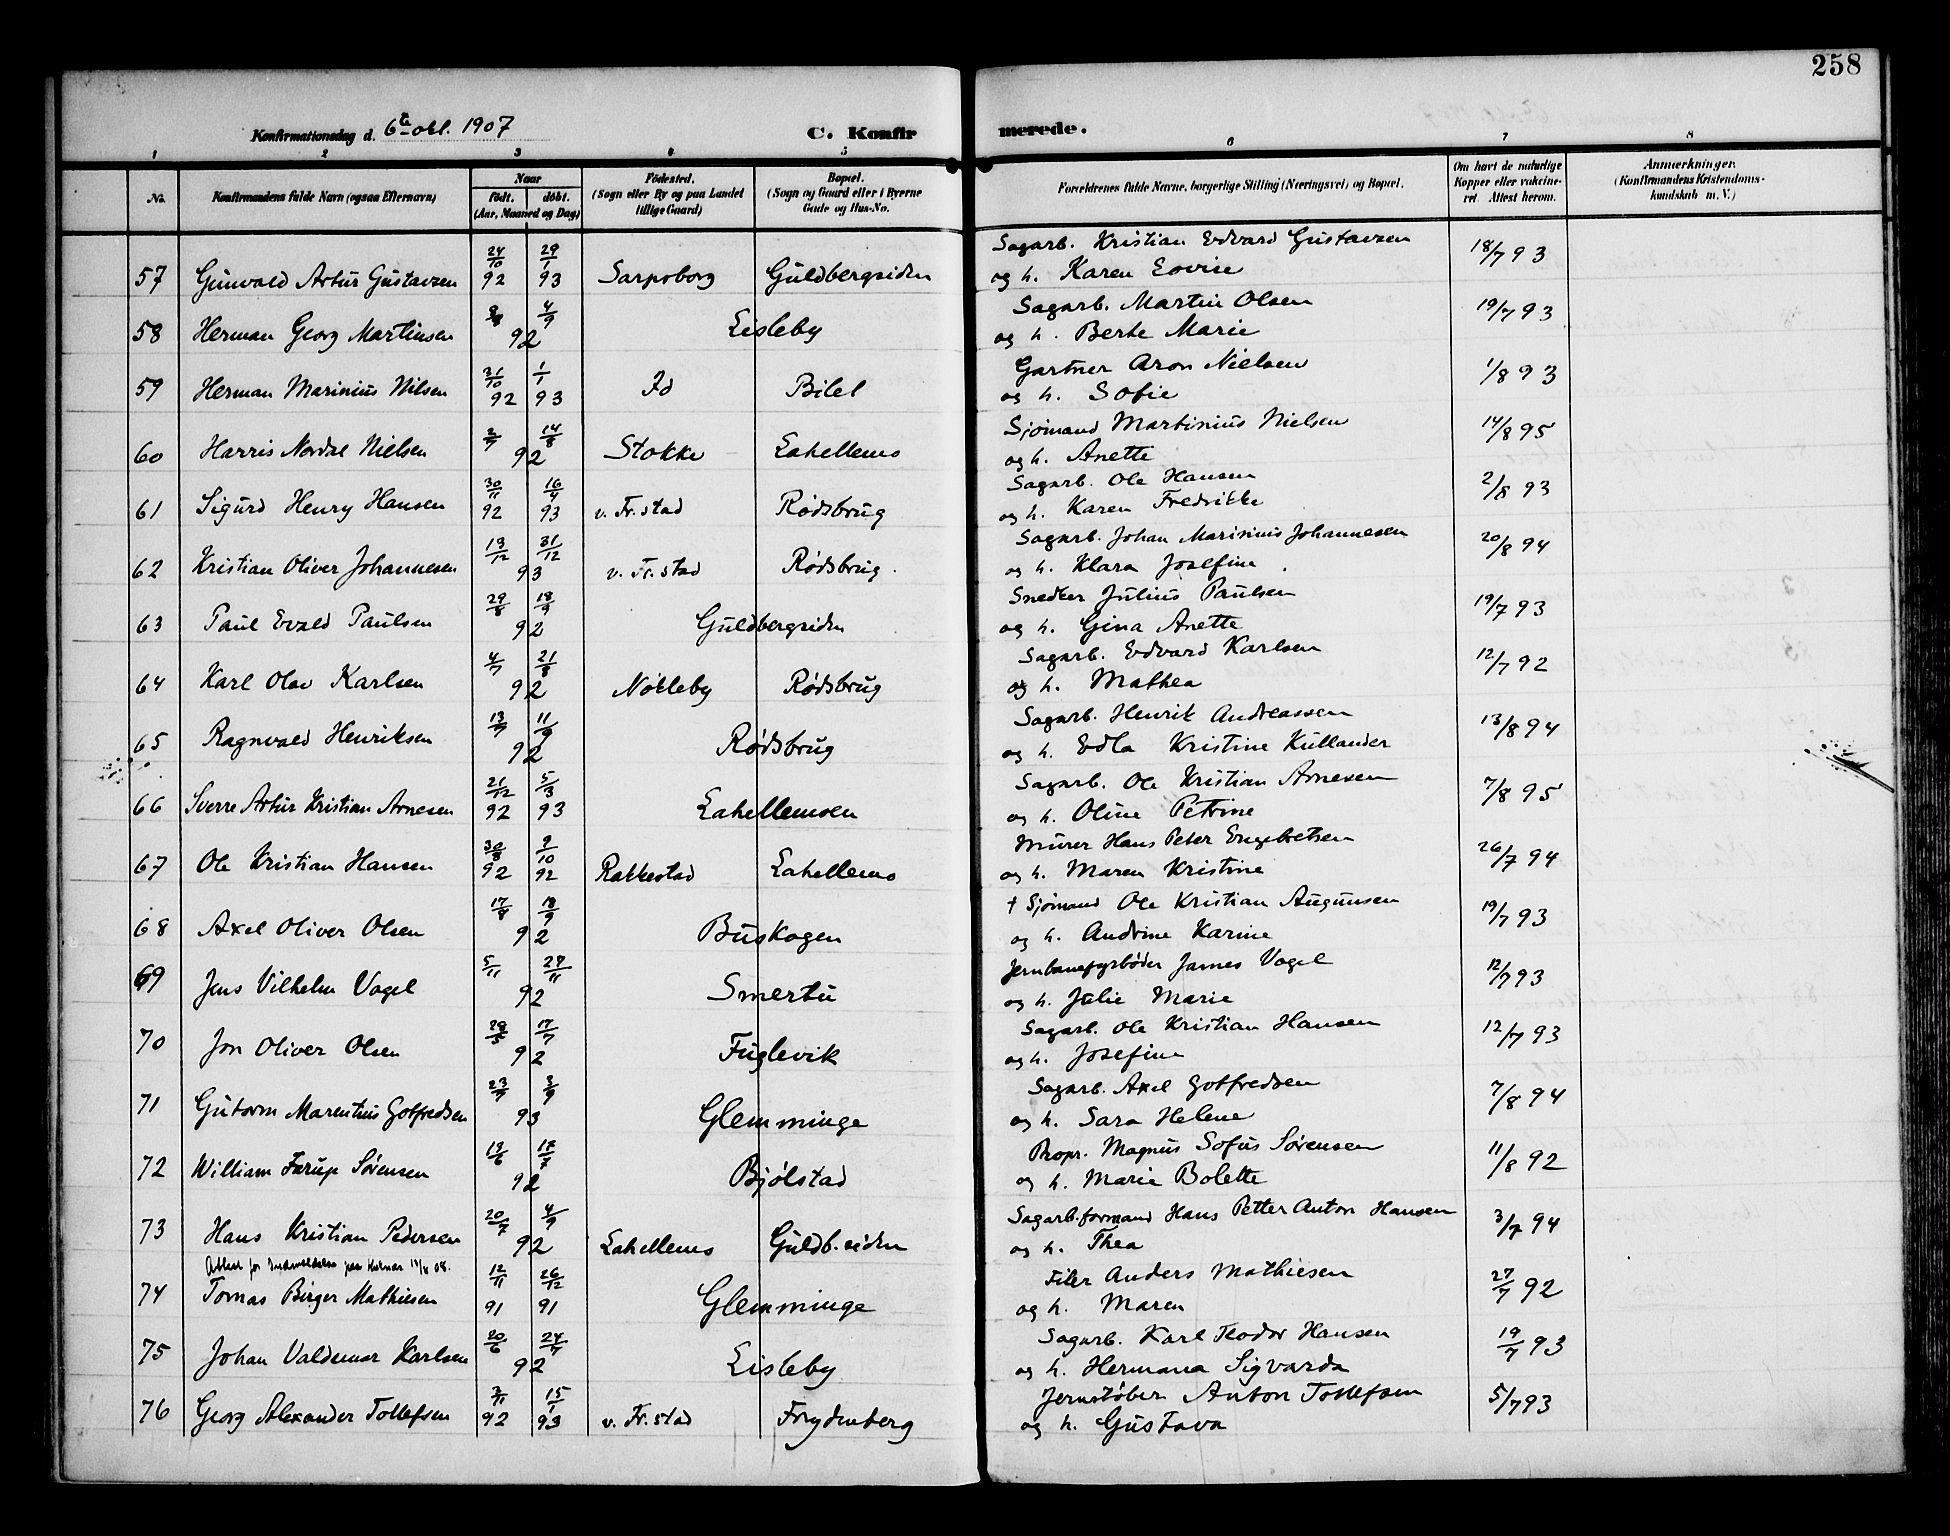 258
Konfirmationsdag d. 6te okt. 1907
C. Konfirmerede.
1 2 3 4 5 6 7 8
No.
Konfirmandens fulde Navn (ogsaa Efternavn)
Naar
født. døbt.
(Aar, Maaned og Dag)
Fødested.
(Sogn eller By og paa Landet
tillige Gaard)
Bopæl.
(Sogn og Gaard eller i Byerne
Gade og Hus-No.
Forældrenes fulde Navne, borgerlige Stilling (Næringsvei) og Bopæl.
Om havt de naturlige
Kopper eller vaccine-
ret. Attest herom.
Anmærkninger.
(Konfirmandens Kristendoms-
kundskab m. V.)
57 Gunvald Artur Gustavsen 24/10 92 29/1 93 Sarpsborg Guldbergsiden Sagarb. Kristian Edvard Gustavsen 18/7 93
og h. Karen Lovise
58 Herman Georg Martinsen 4/9 92 Lisleby Sagarb. Martin Olsen 19/7 93
og h. Berte Marie
59 Herman Marinius Nilsen 31/10 92 1/1 93 Id Bilet Gartner Aron Nielsen 1/8 93
og h. Sofie
60 Harris Nordal Nielsen 2/7 14/8 92 Stokke Lahellemo Sjömand Martinius Nielsen 14/8 95
og h. Anette
61 Sigurd Henry Hansen 30/11 92 16/4 93 v. Fr.stad Rødsbrug Sagarb. Ole Hansen 2/8 93
og h. Karen Fredrikke
62 Kristian Oliver Johannesen 13/12 31/12 93 v. Fr.stad Rødsbrug. Sagarb. Johan Marinius Johannesen 20/8 94
og h. Klara Josefine
63 Paul Evald Paulsen 29/8 18/9 92 Guldbergsiden Snedker Julius Paulsen 19/7 93
og h. Gina Anette
64 Karl Olav Karlsen 4/7 21/8 92 Nökleby Rødsbrug Sagarb. Edvard Karlsen 12/7 92
og h. Mathea
65 Ragnvald Henriksen 13/7 11/9 92 Rødsbrug Sagarb. Henrik Andreassen 13/8 94
og h. Edla Kristine Kullander
66 Sverre Artur Kristian Arnesen 21/12 92 5/3 93 Lahellemoen Sagarb. Ole Kristian Arnesen 7/8 95
og h. Oline Petrine
67 Ole Kristian Hansen 30/8 92 9/10 92 Rakkestad Lahellemo Murer Hans Peter Engebretsen 26/7 94
og h. Maren Kristine
68 Axel Oliver Olsen 17/8 18/9 92 Buskogen † Sjömand Ole Kristian Augunsen 19/7 93
og h. Andrine Karine
69 Jens Vilhelm Vagel 5/11 27/11 92 Smertu Jernbanefyrbøder James Vagel 12/7 93
og h. Julie Marie
70 Jon Oliver Olsen 29/5 17/7 92 Fuglevik Sagarb. Ole Kristian Hansen 12/7 93
og h. Josefine
71 Gutorm Marentius Gotfredsen 23/7 3/9 93 Glemminge Sagarb. Axel Gotfredsen 7/8 94
og h. Sara Helene
72 William Farup Sørensen 19/6 17/7 92 Bjølstad Propr. Magnus Sofus Sørensen 11/8 92
og h. Marie Bolette
73 Hans Kristian Pedersen 20/7 4/9 92 Lahellemo Guldb.siden Sagarb.formand Hans Petter Anton Hansen 3/7 94
og h. Thea
Attest for
74 Tomas Birger Mathiesen 12/11 91 26/12 91 Glemminge Filer Anders Mathiesen 27/7 92
og h. Maren
75 Johan Valdemar Karlsen 20/6 24/7 92 Lisleby Sagarb. Karl Teodor Hansen 19/7 93
og h. Hermana Sigvarda
76 Georg Alexander Tollefsen 3/11 92 15/1 93 v. Fr.stad Frydenberg Jernstøber Anton Tollefsen 5/7 93
og h. Gustava